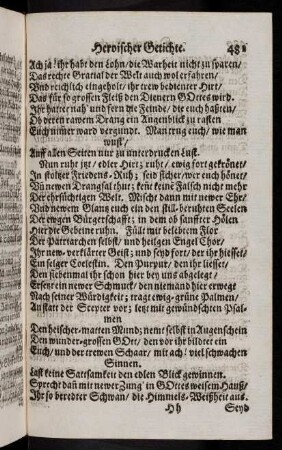 Heroischer Getichte. 481
Ach ja! ihr habt den Lohn/ die Warheit nicht zu sparen/
Das rechte Gratial der Welt auch wol erfahren/
Und reichlich eingeholt/ ihr trew bedienter Hirt/
Das für so grossen Fleiß den Dienern GOttes wird.
Ihr hattet nah' und fern die Feinde/ die euch haßten/
Ob deren rawem Drang ein Augenblick zu rasten
Euch nimer ward vergündt. Man trug euch/ wie man
wust/
Auff allen Seiten nur zu unterdrucken Lust.
Nun ruht ihr/ edler Hirt; ruht/ ewig fort gekrönet/
In stoltzer Friedens-Ruh; seid sicher/ wer euch hönet/
Uñ newen Drangsal thut; keñt keine Falsch nicht mehr
Der ehrsüchtigen Welt. Mischt dann mit newer Ehr/
Und newem Glantz euch ein den still-beruhten Seelen
Der ewgen Bürgerschafft; in dem ob sanffter Hölen
Hier die Gebeine ruhn. Füllt mit belebtem Flor
Der Patriarchen selbst/ und heilgen Engel Chor/
Ihr new-verklärter Geist; und seyd fort/ der ihr hiesset/
Ein selger Coelestin. Den Purpur/ den ihr liesset/
Den siebenmal ihr schon hier bey uns abgelegt/
Ersetzt ein newer Schmuck/ den niemand hier erwegt
Nach seiner Würdigkeit; tragt ewig-grüne Palmen/
An statt der Scepter vor; letzt mit gewündschten Psal-
men
Den heischer-matten Mund; nemt selbst in Augenschein
Den wunder-grossen GOtt/ den vor ihr bildtet ein
Euch/ und der trewen Schaar/ mit ach! viel schwachen
Sinnen.
Last keine Sattsamkeit den edlen Blick gewinnen.
Sprecht dañ mit newer Zung' in GOttes weisem Hauß/
Ihr so beredter Schwan/ die Himmels-Weißheit aus.
Hh Seyd